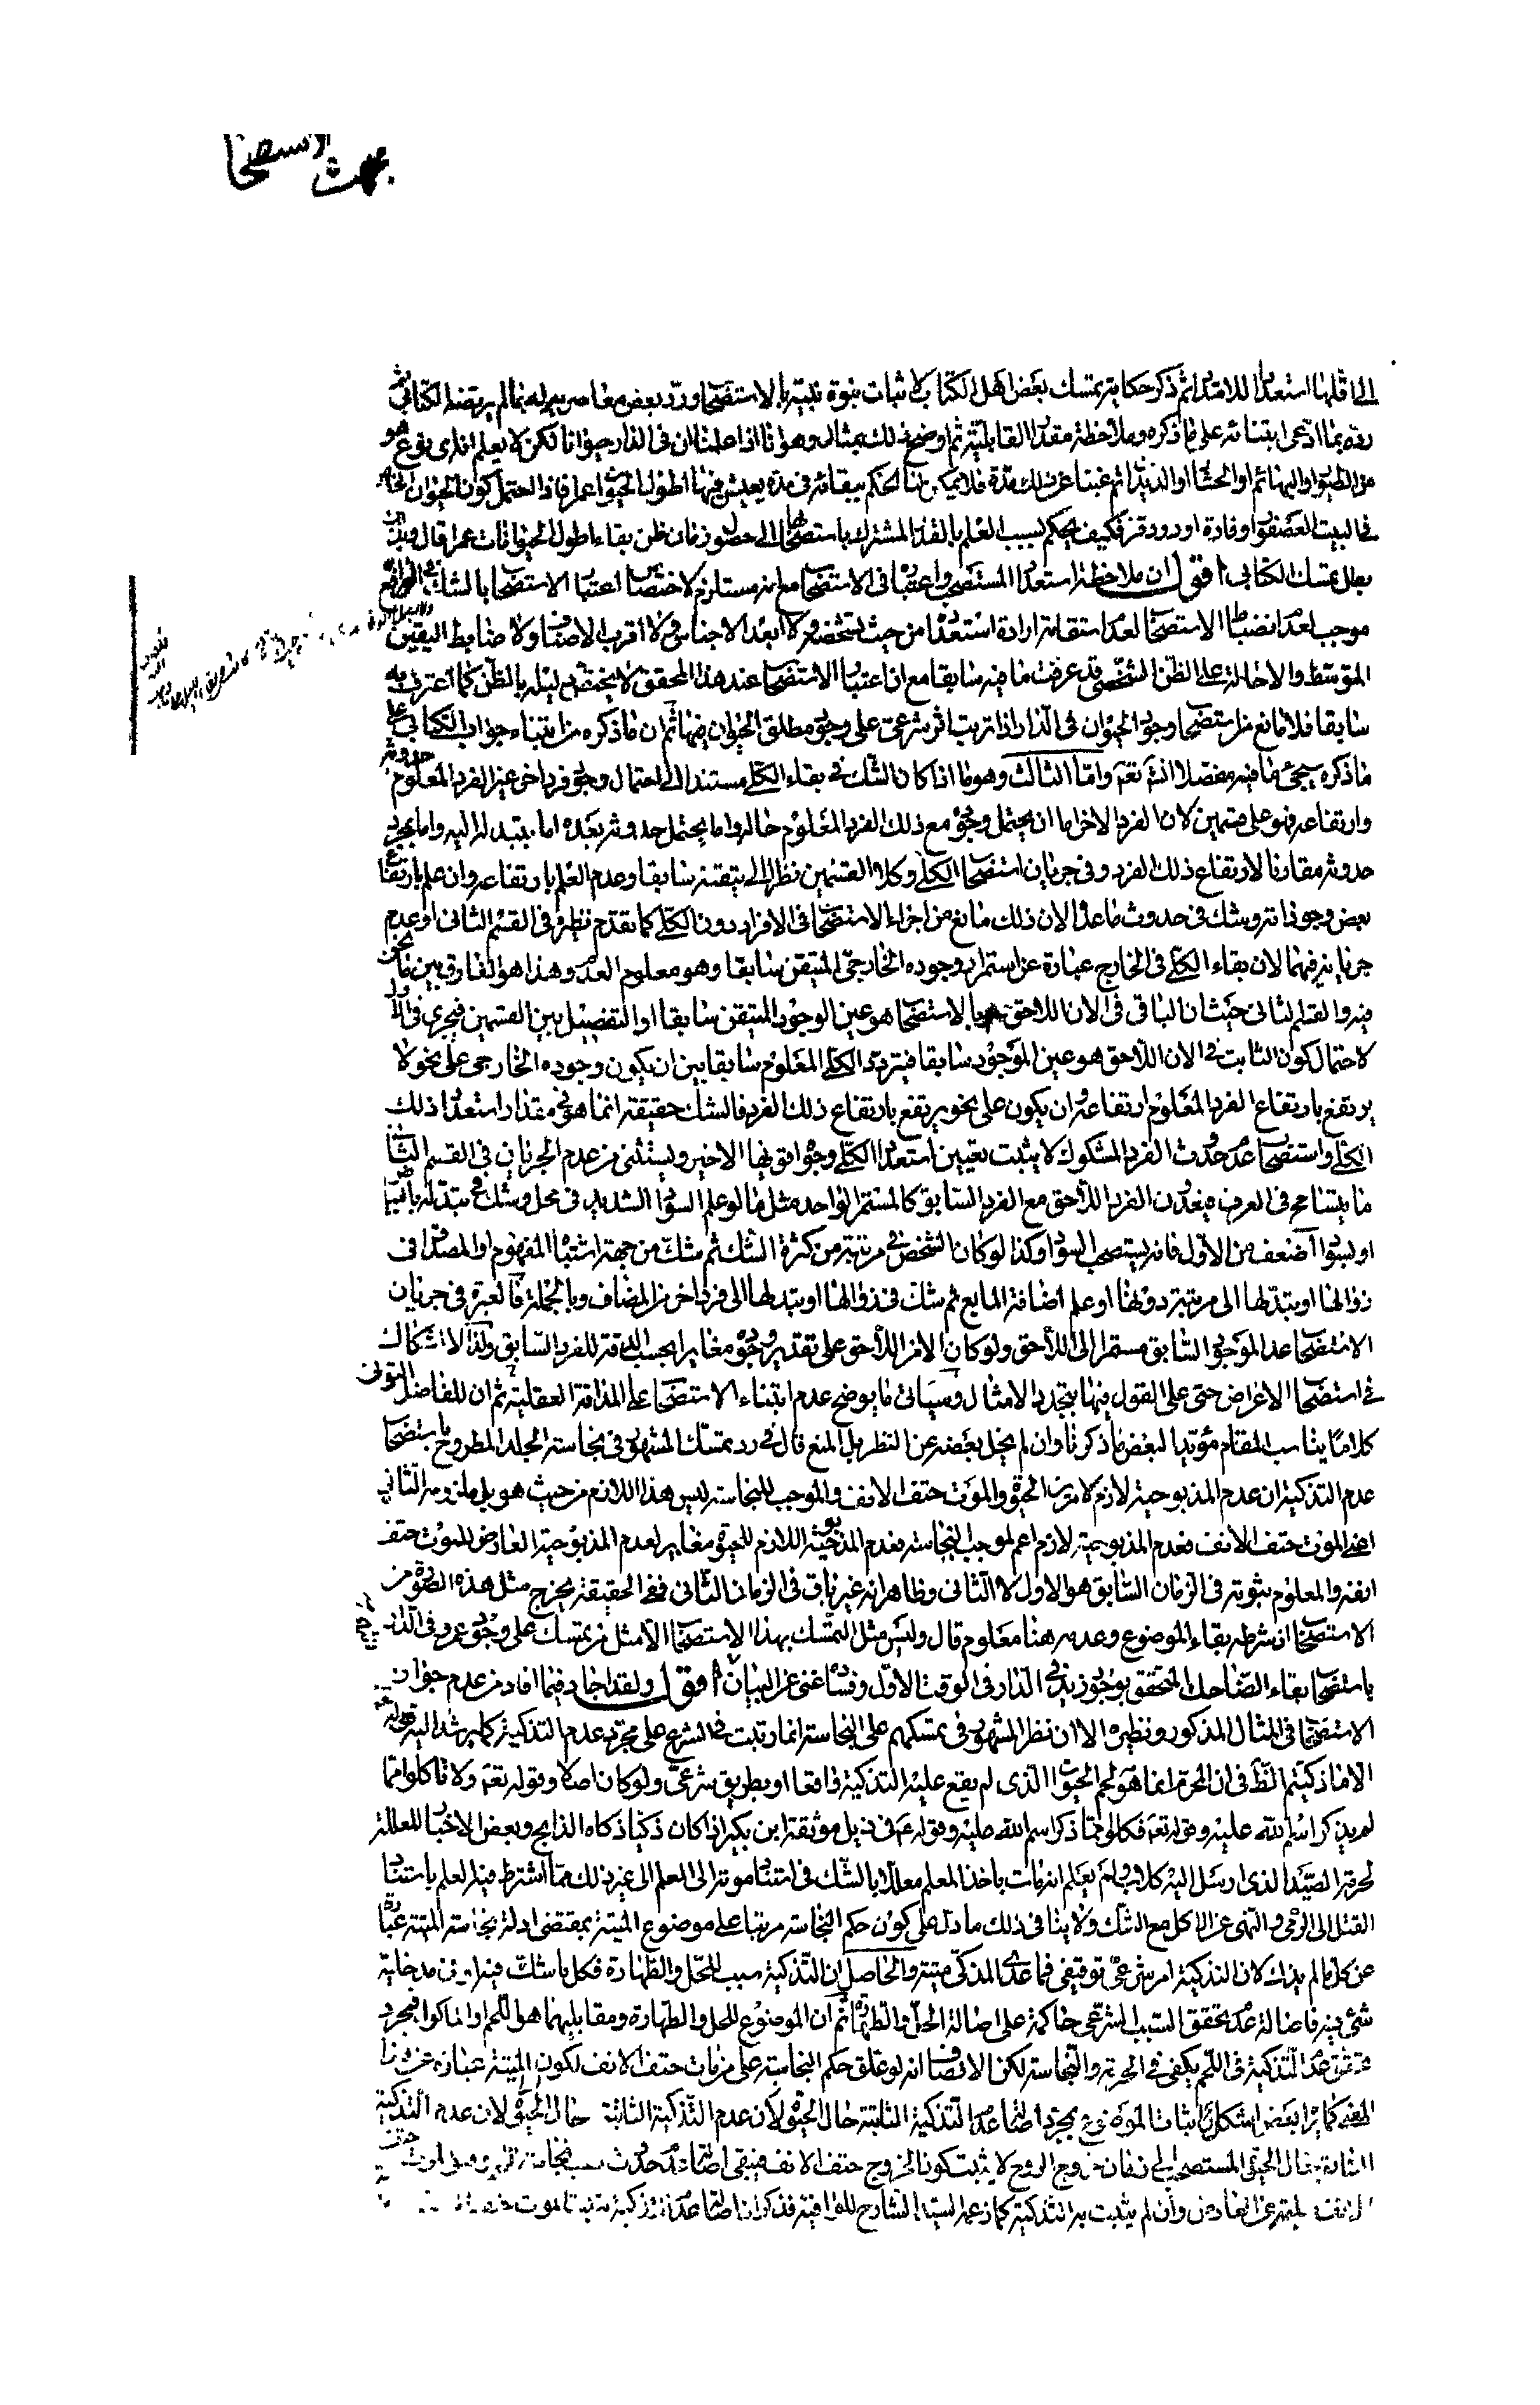 بحث
الاستصحا
الى اقلها استعدادا للامتداد ثم ذكر حكاية تمسك بعض اهل الكتاب لاثبات نبوة نبيه بالاستصحا ورد بعض معاصريه له بما لم يرتضه الكتابي ثم
رده بما ادعى ابتنائه على ما ذكره وملاحظة مقدار القابلية ثم اوضح ذلك بمثال وهو انا اذا علمنا ان في الدار حيوانا لكن لا يعلم انه اى نوع هو
من الطيور او البهائم او الحشار او الديدان ثم غبنا عن ذلك مدة فلا يمكن لنا الحكم ببقائه في مدة يعيش فيها اطول الحيوان عمرا فاذا احتمل كون الحيوان الخاص
في البيت العصفور او فارة او دود قز فكيف يحكم بسبب العلم بالقدر المشترك باستصحابها الى حصول زمان ظن بقاء اطول الحيوانات عمرا قال وبذلك
بطل تمسك الكتابي اقول ان ملاحظة استعداد المستصحب واعتباره في الاستصحا مع انه مستلزم لاختصاص اعتبار الاستصحا بالشك في الرافع
موجب لعدم انضباط الاستصحا لعدم استقامة ارادة استعداده من حيث تشخصه ولا ابعد الاجناس ولا اقرب الاصناف ولا ضابط لتعيين
المتوسط والاحالة على الظن الشخصي قد عرفت ما فيه سابقا مع ان اعتبار الاستصحا عند هذا المحقق لا يختص دليله بالظن كما اعترف به
سابقا فلا مانع من استصحا وجود الحيوان في الدار اذا ترتب اثر شرعى على وجود مطلق الحيوان فيها ثم ان ما ذكره من ابتناء جواب الكتابي على
ما ذكره سيجئ ما فيه مفصلا انشه تعم واما الثالث وهو ما اذا كان الشك في بقاء الكلي مستندا الى احتمال وجود فرد اخر غير الفرد المعلوم حدوثه
وارتفاعه فهو على قسمين لان الفرد الاخر اما ان يحتمل وجوده مع ذلك الفرد المعلوم حاله واما يحتمل حدوثه بعده اما بتبدله اليه واما بمجرد
حدوثه مقارنا لارتفاع ذلك الفرد وفي جريان استصحا الكلي وكلا القسمين نظرا الى تيقنه سابقا وعدم العلم بارتفاعه وان علم بارتفاع
بعض وجوداته وشك في حدوث ما عداه لان ذلك مانع من اجراء الاستصحا في الافراد دون الكلي كما تقدم نظيره في القسم الثاني او عدم
جريانه فيهما لان بقاء الكلي في الخارج عبارة عن استمرار وجوده الخارجي المتيقن سابقا وهو معلوم العدم وهذا هو الفارق بين ما نحن
فيه والقسم الثاني حيث ان الباقي في الان اللاحق بالاستصحا هو عين الوجود المتيقن سابقا او التفصيل بين القسمين فيجرى في الاول
لاحتمال كون الثابت في الان اللاحق هو عين الموجود سابقا فيتردد الكلي المعلوم سابقا بين ان يكون وجوده الخارجي على نحو لا
يرتفع بارتفاع الفرد المعلوم ارتفاعه وان يكون على نحو يرتفع بارتفاع ذلك الفرد فالشك حقيقة انما هو في مقدار استعداد ذلك
الكلي واستصحا عدم حدوث الفرد المشكوك لا يثبت تعيين استعداد الكلي وجوه اقويها الاخير ويستثنى من عدم الجريان في القسم الثاني
ما يتسامح في العرف فيعدون الفرد اللاحق مع الفرد السابق كالمستمر الواحد مثل ما لو علم السواد الشديد في محل وشك في تبدله بالبياض
او بسواد اضعف من الاول فانه يستصحب السواد وكذا لو كان الشخص في مرتبة من كثرة الشك ثم شك من جهة اشتباه المفهوم او المصداق في
زوالها او تبدلها الى مرتبة دونها او علم اضافة المايع ثم شك في زوالها او تبدلها الى فرد اخر من المضاف وبالجملة فالعبرة في جريان
الاستصحا عد الموجود السابق مستمرا الى اللاحق ولو كان الامر اللاحق على تقدير وجوده مغايرا بحسب الدقة للفرد السابق ولذا لا اشكال
في استصحا الاعراض حتى على القول فيها بتجدد الامثال وسياتي ما يوضح عدم ابتناء الاستصحا على المداقة العقلية ثم ان للفاضل التونى
كلاما يناسب المقام مؤيدا لبعض ما ذكرنا وان لم يخل بعضه عن النظر بل المنع قال في رد تمسك المشهور في نجاسة الجلد المطروح باستصحا
عدم التذكية ان عدم المذبوحية لازم لامرين الحيوة والموت حتف الانف والموجب للنجاسة ليس هذا اللازم من حيث هو بل ملزومه الثاني
اعنى الموت حتف الانف فعدم المذبوحية لازم اعم لموجب النجاسة فعدم المذبوحية اللازم للحيوة مغاير لعدم المذبوحية العارض للموت حتف
انفه والمعلوم ثبوته في الزمان السابق هو الاول لا الثاني وظاهر انه غير باق في الزمان الثاني ففي الحقيقة يخرج مثل هذه الصورة من
الاستصحا اذ شرطه بقاء الموضوع وعدمه هنا معلوم قال وليس مثل التمسك بهذا الاستصحا الا مثل من تمسك على وجود عمرو في الدار
باستصحا بقاء الضاحك المتحقق بوجود زيد في الدار في الوقت الاول وفساده غنى عن البيان اقول ولقد اجاد فيما افاد من عدم جواز
الاستصحا في المثال المذكور ونظيره الا ان نظر المشهور في تمسكهم على النجاسة انما رتبت في الشرع على مجرد عدم التذكية كما يرشد اليه قوله تعم
الا ما ذكيتم الظ في ان المحرم انما هو لحم الحيوان الذى لم يقع عليه التذكية واقعا او بطريق شرعى ولو كان اصلا وقوله تعم ولا تاكلوا مما
لم يذكر اسم الله عليه وقوله تعم فكلوا مما ذكر اسم الله عليه وقوله ع في ذيل موثقة ابن بكير اذا كان ذكيا ذكاه الذابح وبعض الاخبار المعللة
لحرمة الصيد الذى ارسل اليه كلاب ولم يعلم انه مات باخذ المعلم معللا بالشك في استناد موته الى المعلم الى غير ذلك مما اشترط فيه العلم باستناد
القتل الى الرمى والنهى عن الاكل مع الشك ولا ينافي ذلك ما دل على كون حكم النجاسة مرتبا على موضوع الميتة بمقتضى ادلة نجاسة الميتة عبارة
عن كل ما لم يذك لان التذكية امر شرعى توقيفي فما عدى المذكى ميتة والحاصل ان التذكية سبب للحل والطهارة فكل ما شك فيه او في مدخلية
شئ فيه فاصالة عدم تحقق السبب الشرعى حاكمة على اصالة الحل والطهارة ثم ان الموضوع للحل والطهارة ومقابليهما هو اللحم او الماكول فمجرد
تحقق عدم التذكية في اللحم يكفي في الحرمة والنجاسة لكن الانصاف انه لو علق حكم النجاسة على من مات حتف الانف لكون الميتة عبارة عن هذا
المعنى كما يراه بعض اشكل اثبات الموضوع بمجرد اصالة عدم التذكية الثابتة حال الحيوة لان عدم التذكية
حال الحيوة المستصحب الى زمان خروج الروح لا يثبت كون الخروج حتف الانف فيبقى اصالة عدم حدوث سبب نجاسة اللحم وهو الموت حتف
وان لم يثبت به التذكية كما زعمه السيد الشارح للوافية فذكر ان اصالة عدم التذكية تثبت الموت